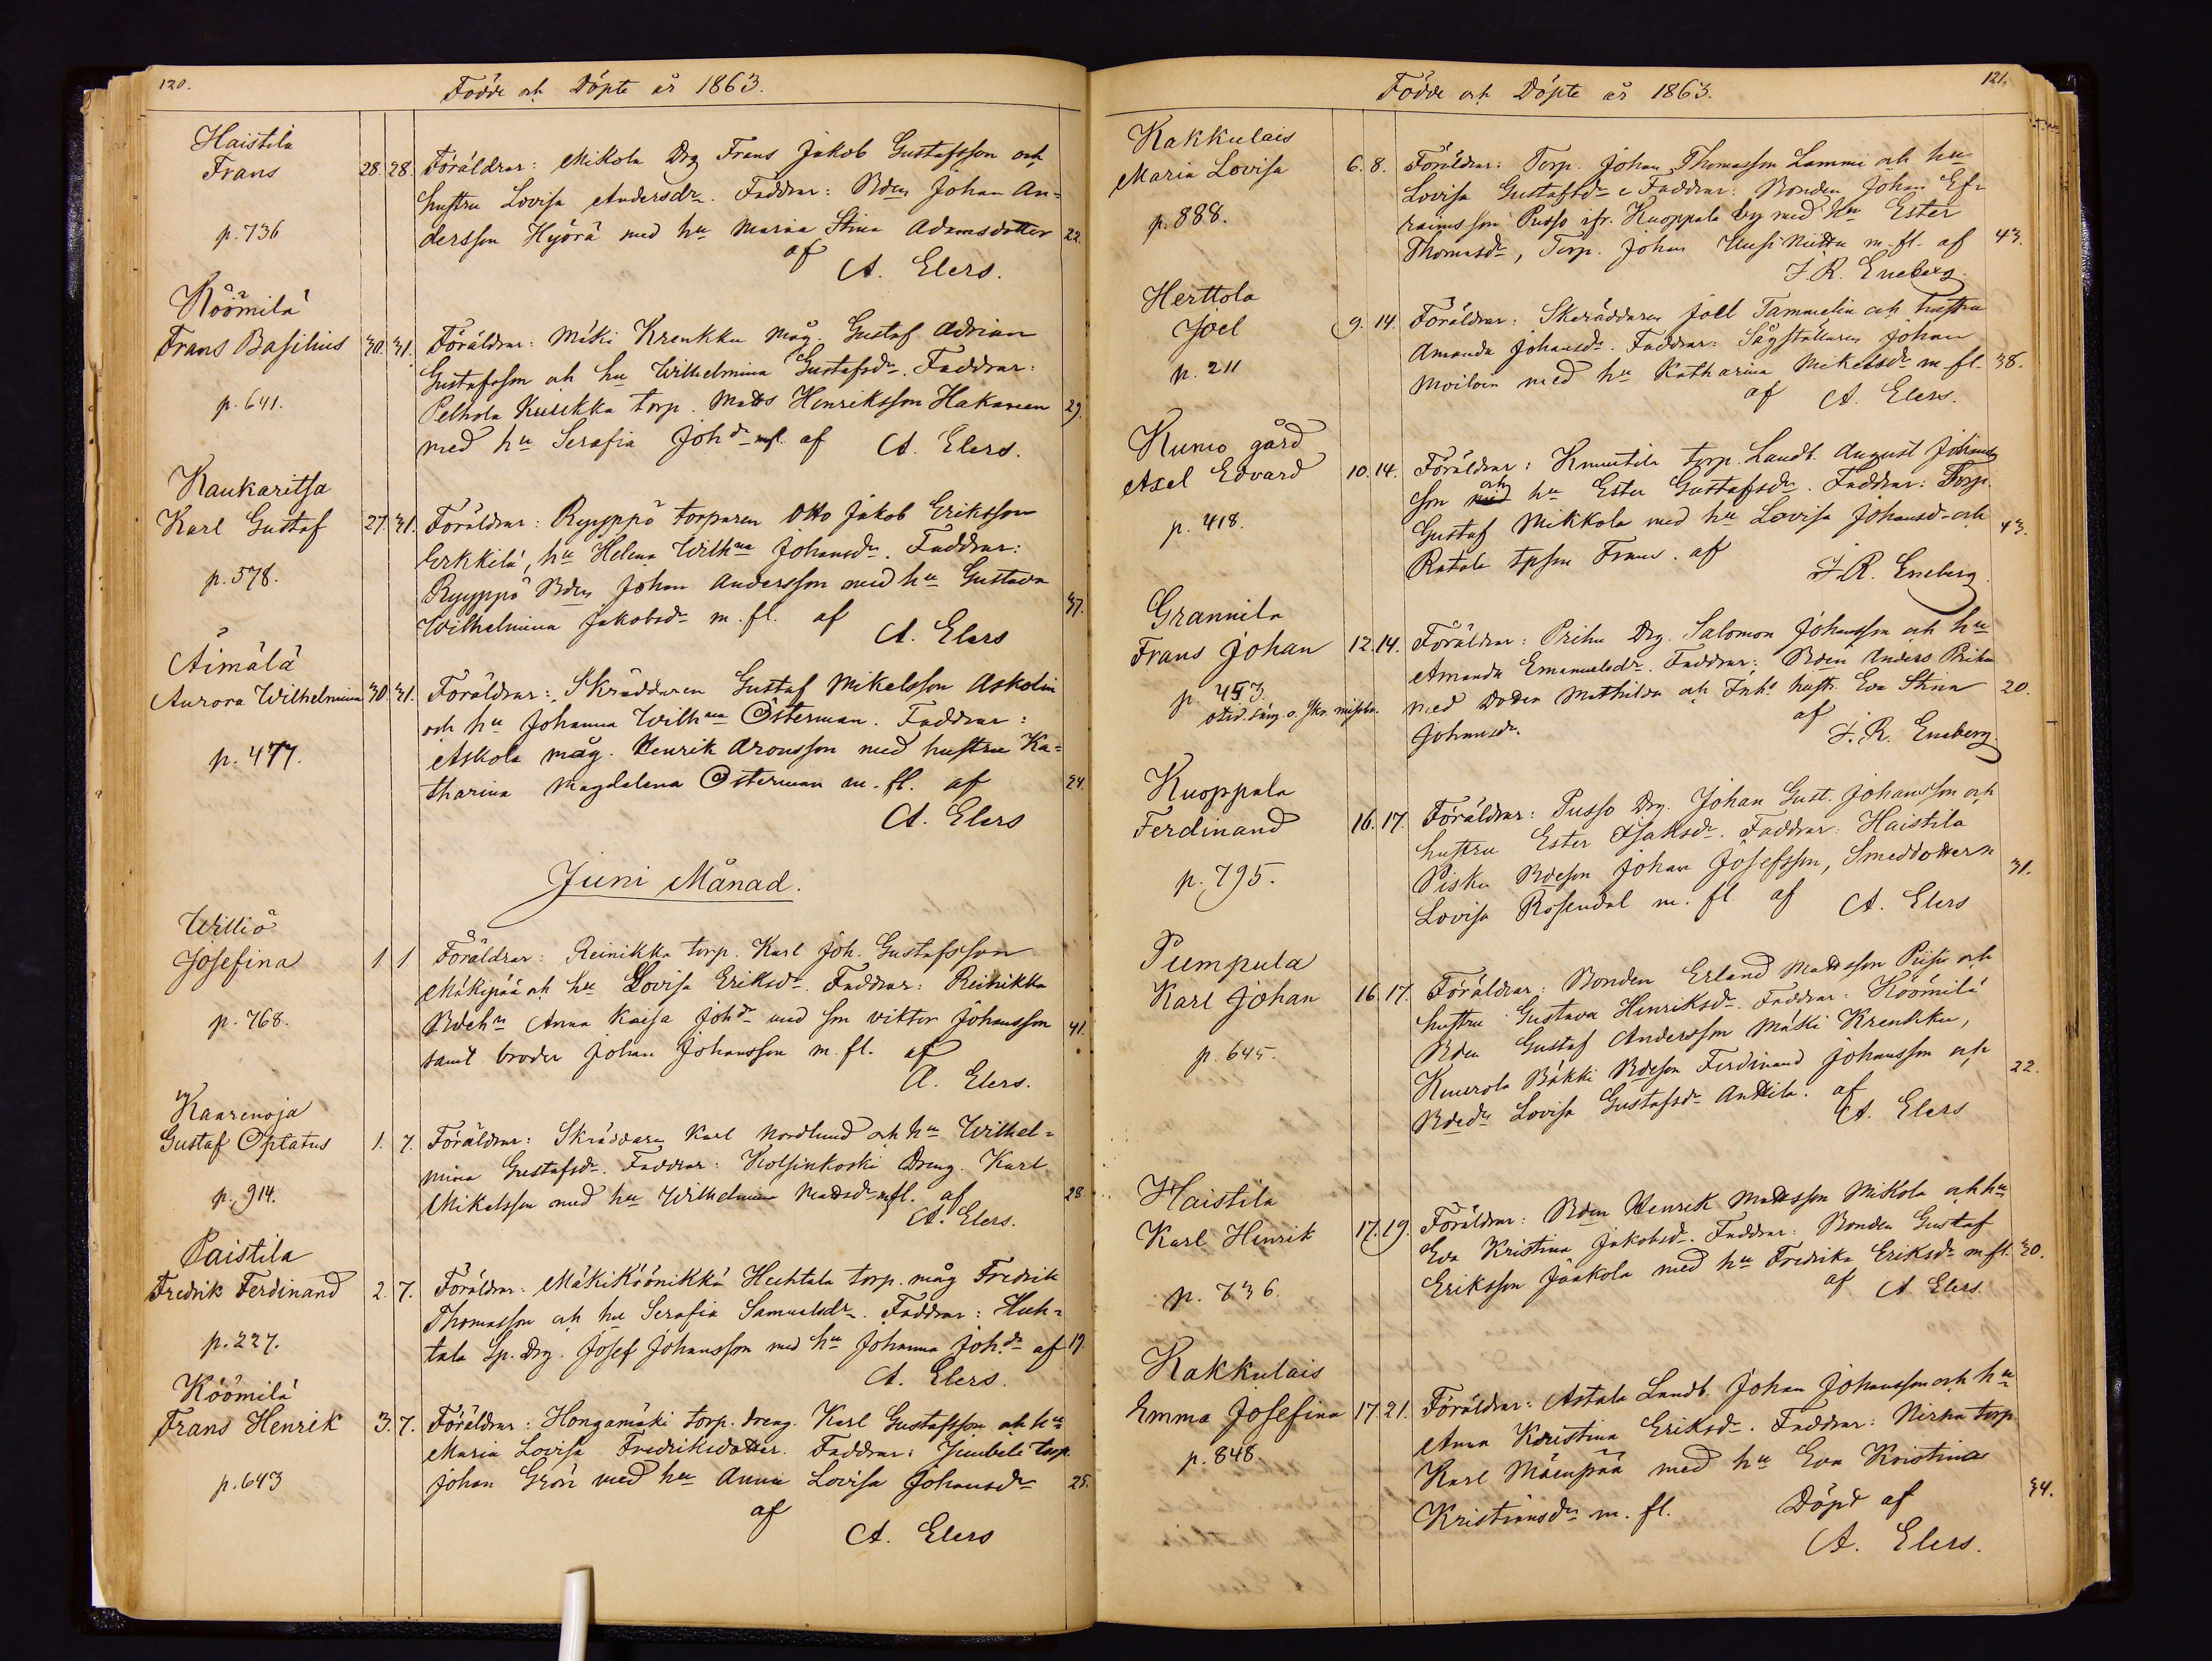 120.
Födde och Döpte år 1863.
Haistila
Frans
28. 28.
p. 736
Föräldrar: Mikola Drg Frans Jakob Gustafsson och
hustru Lovisa Andersdr. Faddrar: Bden Johan An=
dersson Hyörä med hu Maria Stina Adamsdotter 22.
af
A. Elers.
Köömilä
Frans Basilius 30. 31.
p. 641.
Föräldrar: Mäki Krenkku måg. Gustaf Adrian
Gustafsson och hu Wilhelmina Gustafsdr. Faddrar:
Pelhola Kuukka torp. Matts Henriksson Hakanen 29.
med hu Serafia Johdr mfl. af A. Elers.
Kaukaritsa
Karl Gustaf 27. 31.
p. 578.
Föräldrar: Ryyppö torparen Otto Jakob Eriksson
Erkkilä, hu Helena Wilhna Johansdr. Faddrar:
Ryyppö Bden Johan Andersson med hu Gustava
Wilhelmina Jakobsdr m. fl. af 37.
A. Elers
Äimälä
Aurora Wilhelmina 30. 31.
p. 477.
Föräldrar: Skräddaren Gustaf Mikelsson Askolin
och hu Johanna Wilhna Österman. Faddrar:
Askola måg. Henrik Aronsson med hustru Ka=
tharina Magdalena Österman m. fl. af 24.
A. Elers
Juni Månad.
Williö
Josefina 1. 1.
p. 768.
Föräldrar: Reinikka torp. Karl Joh. Gustafsson
Mäkipää och hu Lovisa Eriksdr. Faddrar: Reinikka
Bdehu Anna Kaisa Johdr med son Viktor Johansson 41.
samt broder Johan Johansson m. fl. af
A. Elers.
Kaarenoja
Gustaf Optatus 1. 7.
p. 914.
Föräldrar: Skräddare Karl Nordlund och hu Wilhel=
mina Gustafsdr. Faddrar: Kolsinkoski Dreng. Karl
Mikelsson med hu Wilhelmina Mattsdr mfl. af 28.
A. Elers.
Paistila
Fredrik Ferdinand 2. 7.
p. 227.
Föräldrar: Mäki Köönikkä Huhtala torp. måg Fredrik
Thomasson och hu Serafia Samuelsdr. Faddrar: Huh=
tala Sp. Drg. Josef Johansson med hu Johanna Joh.dr af 19.
A. Elers.
Köömilä
Frans Henrik 3. 7.
p. 643
Föräldrar: Hongamäki torp. dreng. Karl Gustafsson och hu
Maria Lovisa Fredriksdotter. Faddrar: torp.
Johan Grön med hu Anna Lovisa Johansdr 25.
af
A. Elers
121.
Födde och Döpte år 1863.
Kakkulais
Maria Lovisa 6. 8.
p. 888.
Föräldrar: Torp. Johan Thomasson Lammi och hu
Lovisa Gustafsdr. Faddrar: Bonden Johan Ef=
raimsson Pusso ifr. Kuoppala by med hu Ester
Thomasdr, Torp. Johan Uusi Niittu m. fl. af 43.
F. R. Eneberg.
Herttola
Joel 9. 14.
p. 211
Föräldrar: Skräddaren Joel Tammelin och hustru
Amanda Johansdr. Faddrar: Sågställaren Johan
Moiloin med hu Katharina Mikelsdr m. fl. 38.
af A. Elers.
Kumo gård
Axel Edvard 10. 14.
p. 418.
Föräldrar: Knuutila torp. Landb. August Johans
son och hu Ester Gustafsdr. Faddrar: Torp.
Gustaf Mikkola med hu Lovisa Johansdr och 43.
Ratala tpson Frans. af
F. R. Eneberg.
Grannila
Frans Johan 12. 14.
p 453
Föräldrar: Prihu Drg. Salomon Johansson och hu
Amanda Emanuelsdr. Faddrar: Bden Anders Prihu
med dotter Mathilda och Inhs hustr. Eva Stina 20.
Johansdr. af
F. R. Eneberg.
Kuoppala
Ferdinand 16. 17.
p. 795.
Föräldrar: Pusso Drg. Johan Gust. Johansson och
hustru Ester Isaksdr. Faddrar: Haistila
Pisku Bdeson Johan Josefsson, Smeddottern 31.
Lovisa Rosendal m. fl. af A. Elers
Pumpula
Karl Johan 16. 17.
p. 645.
Föräldrar: Bonden Erland Mattsson Piisi och
hustru Gustava Henriksdr. Faddrar: Köömilä
Bden Gustaf Andersson Mäki Krenkku,
Knuerola Bäkki Bdeson Ferdinand Johansson och 22.
Bdedr Lovisa Gustafsdr Anttila. af
A. Elers
Haistila
Karl Henrik 17. 19.
p. 736.
Föräldrar: Bden Henrik Mattsson Mikola och hu
Eva Kristina Jakobsdr. Faddrar: Bonden Gustaf
Eriksson Jaakola med hu Fredrika Eriksdr m. fl. 30.
af A Elers.
Kakkulais
Emma Josefina 17. 21.
p. 848.
Föräldrar: Astala Landb. Johan Johansson och hu
Anna Kristina Eriksdr. Faddrar: Nirka torp.
Karl Mäenpää med hu Eva Kristina
Kristiansdr m. fl. Döpt af 34.
A. Elers.